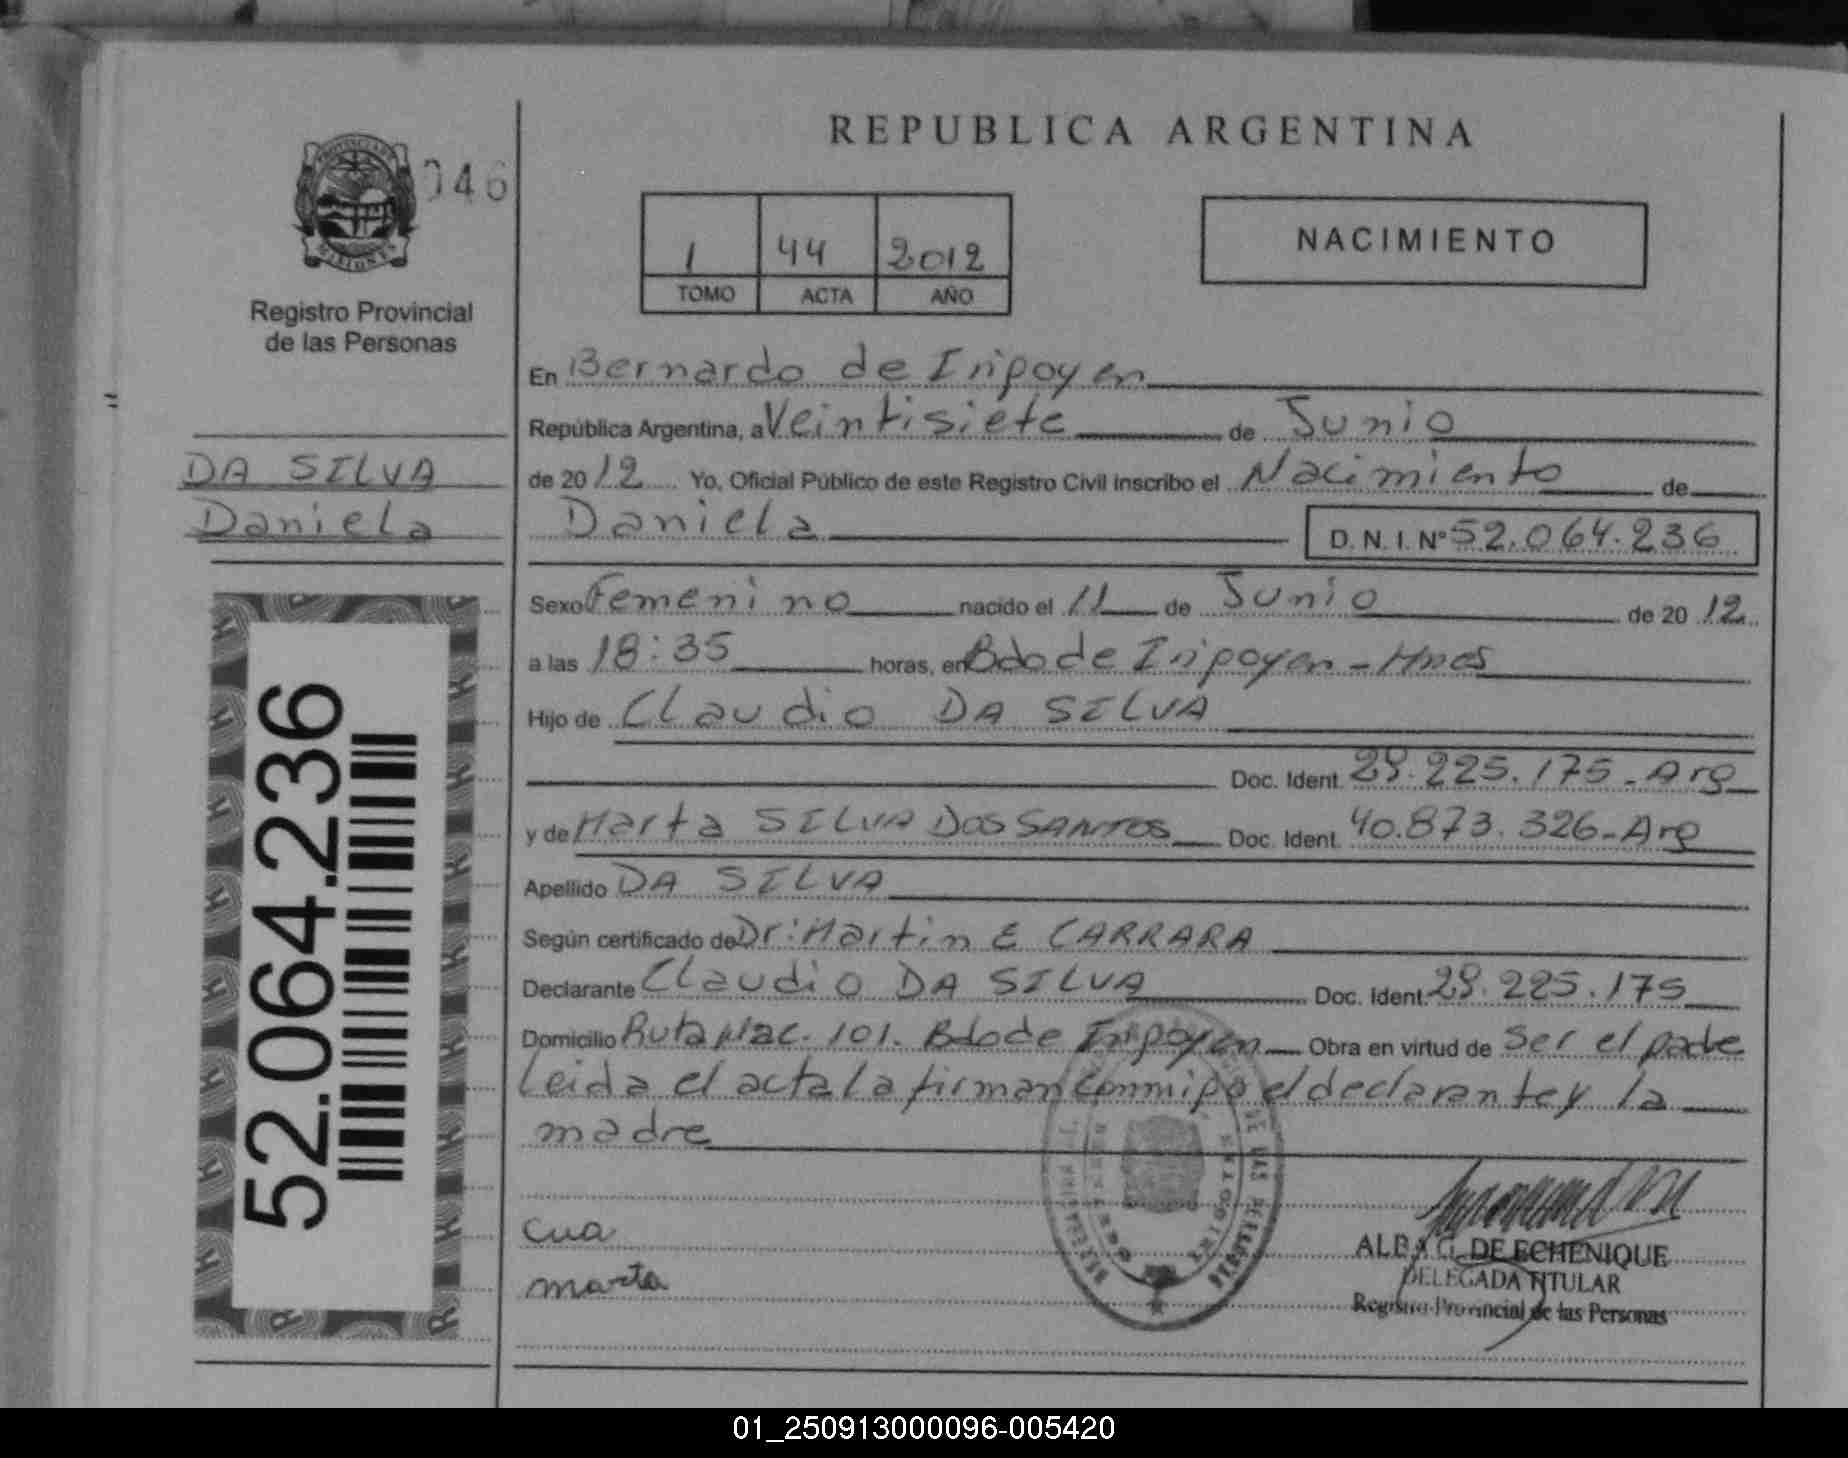 REPUBLICA ARGENTINA
046
1 44 2012
TOMO ACTA AÑO
NACIMIENTO
Registro Provincial
de las Personas
DA SILVA
Daniela
52.064.236
En Bernardo de Iripoyen
República Argentina, a Veintisiete de Junio
de 2012 Yo, Oficial Público de este Registro Civil inscribo el Nacimiento de
Daniela D.N.I. Nº 52.064.236
Sexo Femenino nacido el 11 de Junio de 2012
a las 18:35 horas, en Bdo de Iripoyen - Mnes
Hijo de Claudio DA SILVA
Doc. Ident. 29.225.175 - Arg
y de Marta SILVA DOS SANTOS Doc. Ident. 40.873.326 - Arg
Apellido DA SILVA
Según certificado de Dr: Martin E CARRARA
Declarante Claudio DA SILVA Doc. Ident. 29.225.175
Domicilio Ruta Nac. 101. Bdo de Iripoyen Obra en virtud de ser el padre
Leida el acta la firman conmigo el declarante y la
madre
marta
ALBA G. DE ECHENIQUE
DELEGADA TITULAR
Registro Provincial de las Personas
01_250913000096-005420